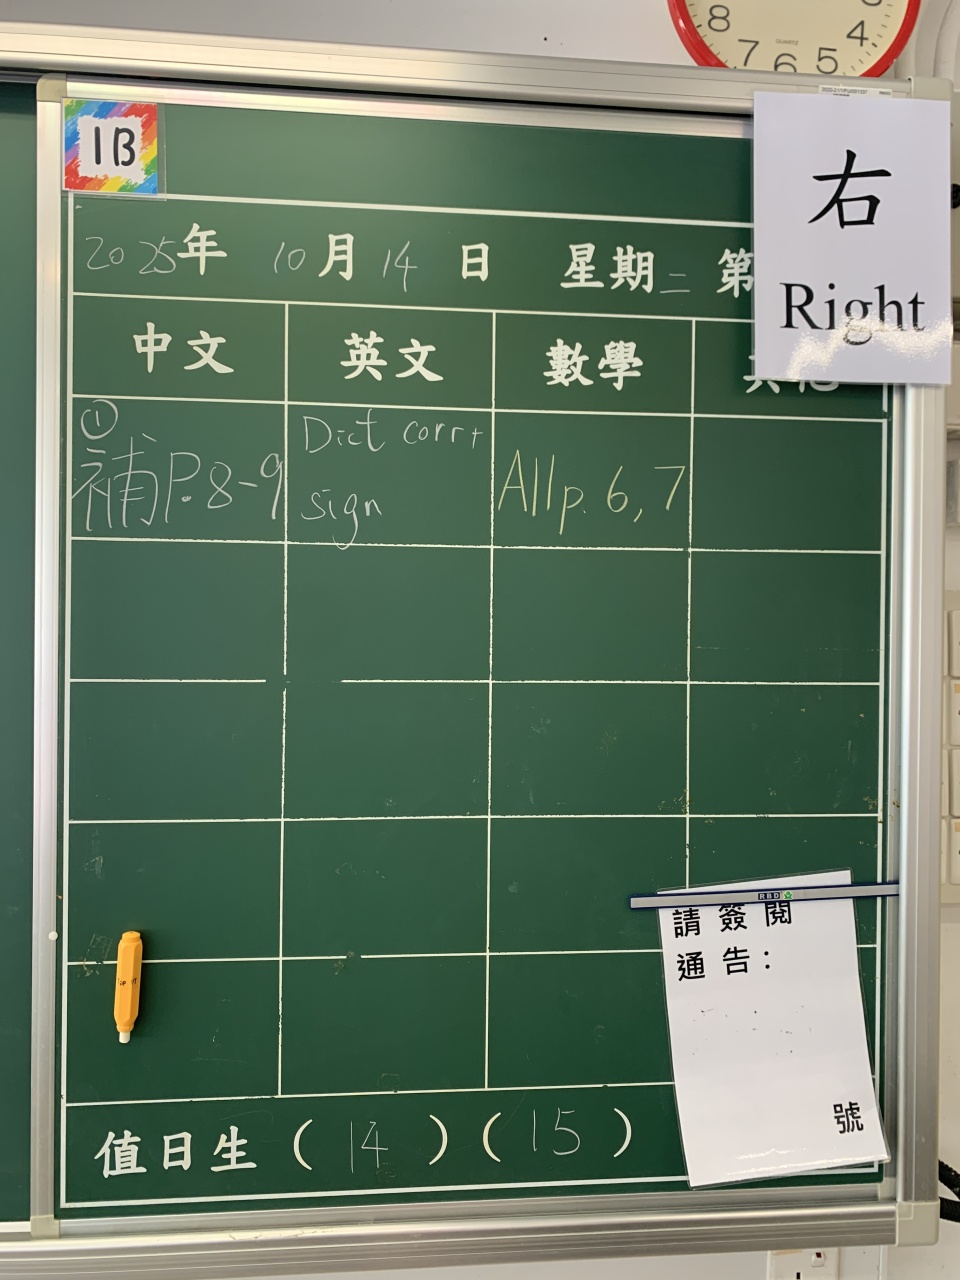 8 7 6 5 4
QUARTZ
1B
右
Right
2025年 10月14日 星期二 第
中文 英文 數學
①
補P.8-9
Dict corr+
sign
All p. 6, 7
RBD
請簽閱
通告：
號
值日生（14）（15）